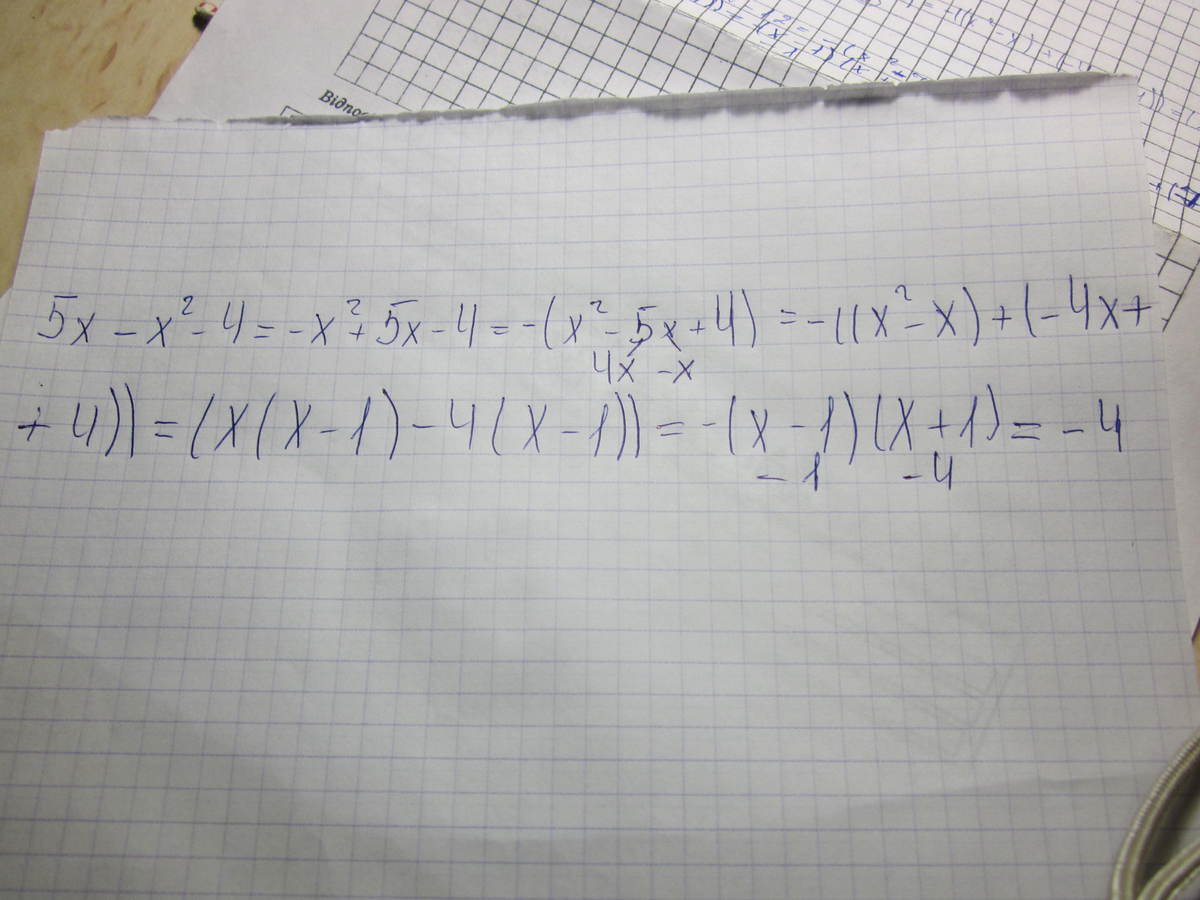 Відпо
5x - x² - 4 = -x² + 5x - 4 = -(x² - 5x + 4) = -((x² - x) + (-4x +
4x -x
+ 4)) = (x(x - 1) - 4(x - 1)) = -(x - 1)(x + 1) = -4
-1 -4